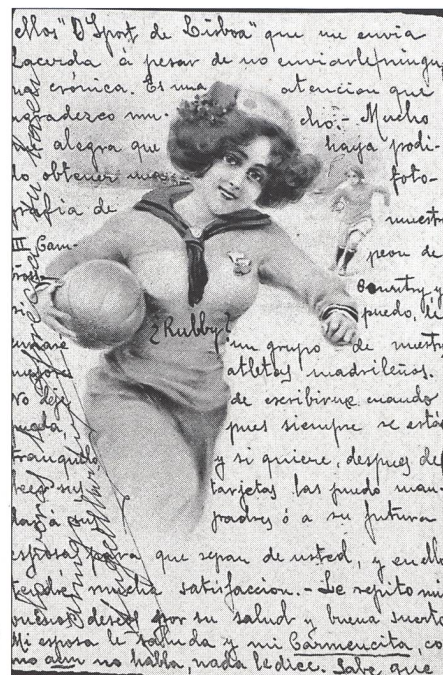 "O Sport de Lisboa" que me envia
Lacerda á pesar de no enviarle ningu-
na crónica. Es una atencion que
agradezco mu- cho.- Mucho
alegra que haya podi-
do obtener foto-
grafia de nuestro
Cam- peon de
Country y
si puedo, le
¿Rubby?
un grupo de nuestros
atletas madrileños.
No deje de escribirme cuando
pueda pues siempre se está
tranquilo y si quiere, despues de
sus tarjetas las puedo man-
dar á sus padres ó a su futura
esposa para que sepan de usted, y en ello
tendré mucha satisfaccion. - Le repito mis
buenos deseos por su salud y buena suerte
Mi esposa le saluda y mi Carmencita, co-
mo aun no habla, nada le dice. Sabe que